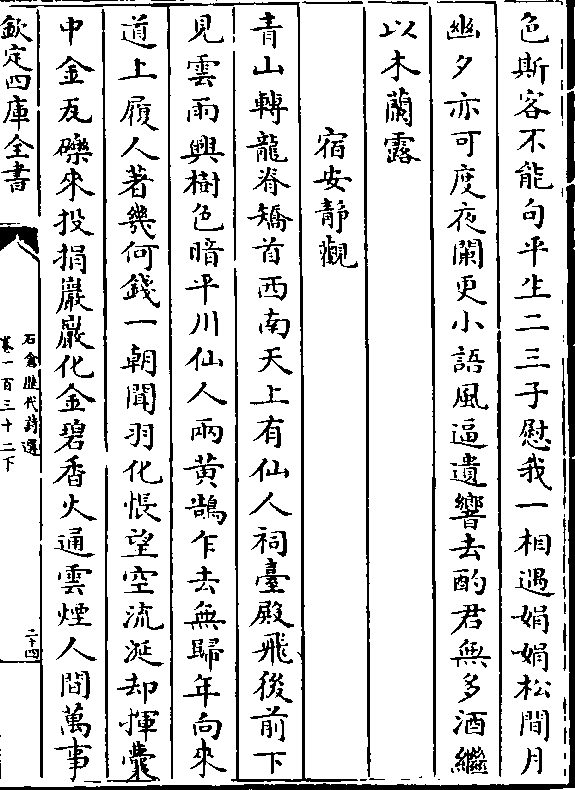 色斯容不能句平生二三子慰我一相遇娟娟松間月
幽夕亦可度夜闌更小語風逼遺響去酌君無多酒繼
以木蘭露
宿安靜觀
青山轉龍脊矯首西南天上有仙人祠臺殿飛後前下
見雲雨興樹色暗平川仙人兩黃鵠乍去無歸年向來
道上履人著幾何錢一朝聞羽化悵望空流涎却揮囊
中金瓦礫來投捐巖巖化金碧香火通雲煙人間萬事
欽定四庫全書
石倉歷代詩選
卷一百三十二下
二十四